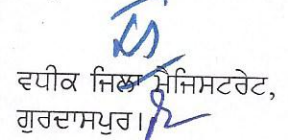 ਵਧੀਕ ਜਿਲਾ ਮੈਜਿਸਟਰੇਟ,
ਗੁਰਦਾਸਪੁਰ।